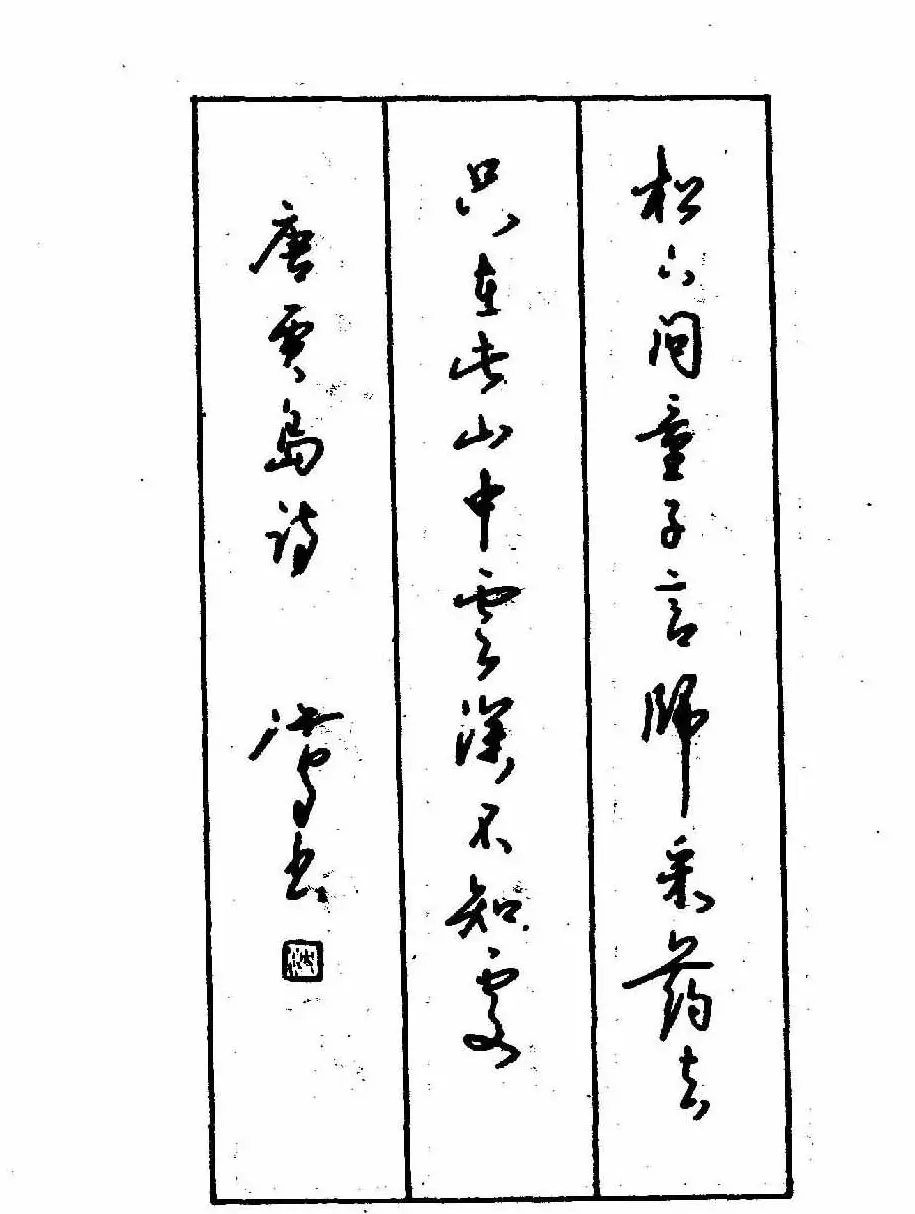 松下问童子言師采药去
只在此山中雲深不知處
唐贾島诗 书